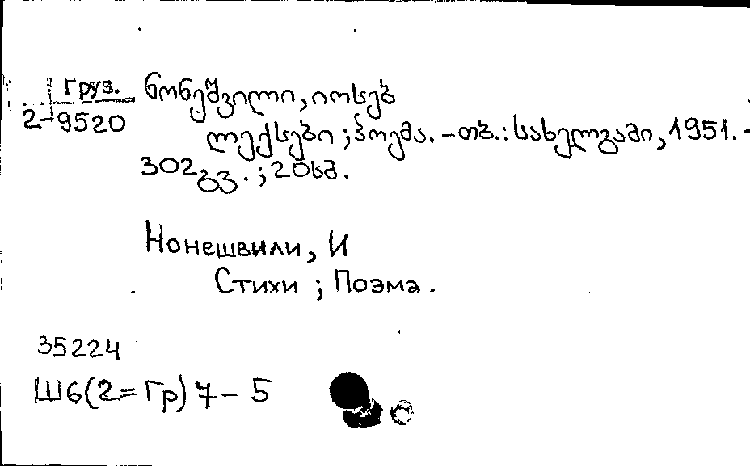 Груз. ნონეშვილი, იოსებ
2-9520
ლექსები ; პოემა. - თბ. : სახელგამი, 1951. -
302გვ. ; 20სმ.
Нонешвили, И
Стихи ; Поэма .
35224
Ш6(2=Гр)7-5